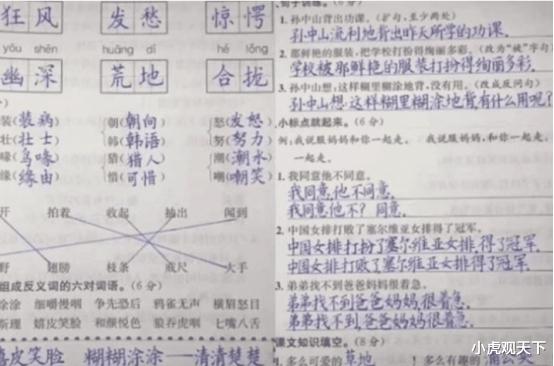 狂风 发愁 惊愕
yōu shēn huāng dì hé lǒng
幽深 荒地 合拢
装(装病) 朝(朝向) 怒(发怒)
壮(壮士) 韩(韩语) 努(努力)
喙(鸟喙) 猎(猎人) 潮(潮水)
缘(缘由) 惜(可惜) 嘲(嘲笑)
开 拍着 收起 抽出 闻到
野 翅膀 枝条 戒尺 大手
组成反义词的六对词语。(6分)
涂涂 细嚼慢咽 争先恐后 鸦雀无声 横眉怒目
斯理 嬉皮笑脸 和颜悦色 狼吞虎咽 七嘴八舌
嬉皮笑脸 糊糊涂涂——清清楚楚
句子训练。
1. 孙中山背出功课。(扩句,至少两处)
孙中山流利地背出昨天所学的功课.
2. 那鲜艳的服装,把学校打扮得绚丽多彩。(改为“被”字句)
学校被那鲜艳的服装打扮得绚丽多彩.
3. 孙中山想:这样糊里糊涂地背,没有用。(改成反问句)
孙中山想:这样糊里糊涂地背有什么用呢?
小标点跳起来。(6分)
例:我说服妈妈和你一起走。 我说服妈妈,和你一起走。
一起走。
1. 我同意他不同意。
我同意,他不同意.
我同意他不?同意.
2. 中国女排打败了塞尔维亚女排得了冠军。
中国女排打扮了塞尔维亚女排,得了冠军.
中国女排打败了塞尔维亚女排得了冠军.
3. 弟弟找不到爸爸妈妈很着急。
弟弟找不到爸爸妈妈,很着急.
弟弟找不到,爸爸妈妈很着急.
课文知识填空。(8分)
1. 多么可爱的草地 ! 多么有趣的蒲公英
小虎观天下